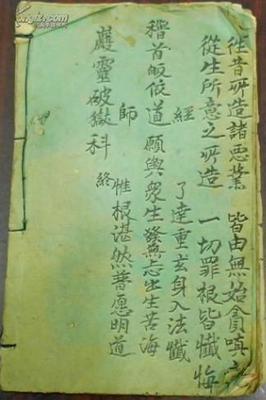 往昔所造諸恶業 皆由無始貪嗔
從生所意之所造 一切罪根皆懺悔
經 了達重玄身入法懺
稽首皈依道 願與衆生發無忘出生苦海
師 惟根湛然普愿明道
護靈破獄科 終